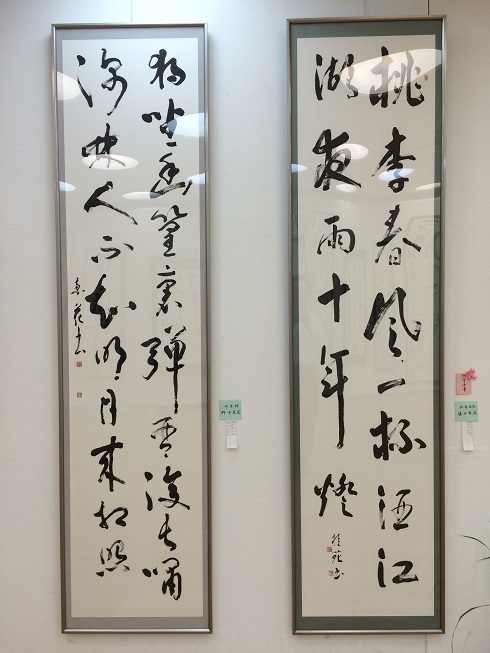 桃李春風一杯酒江
湖夜雨十年燈
桂苑書
獨坐幽篁裏彈琴復長嘯
深林人不知明月來相照